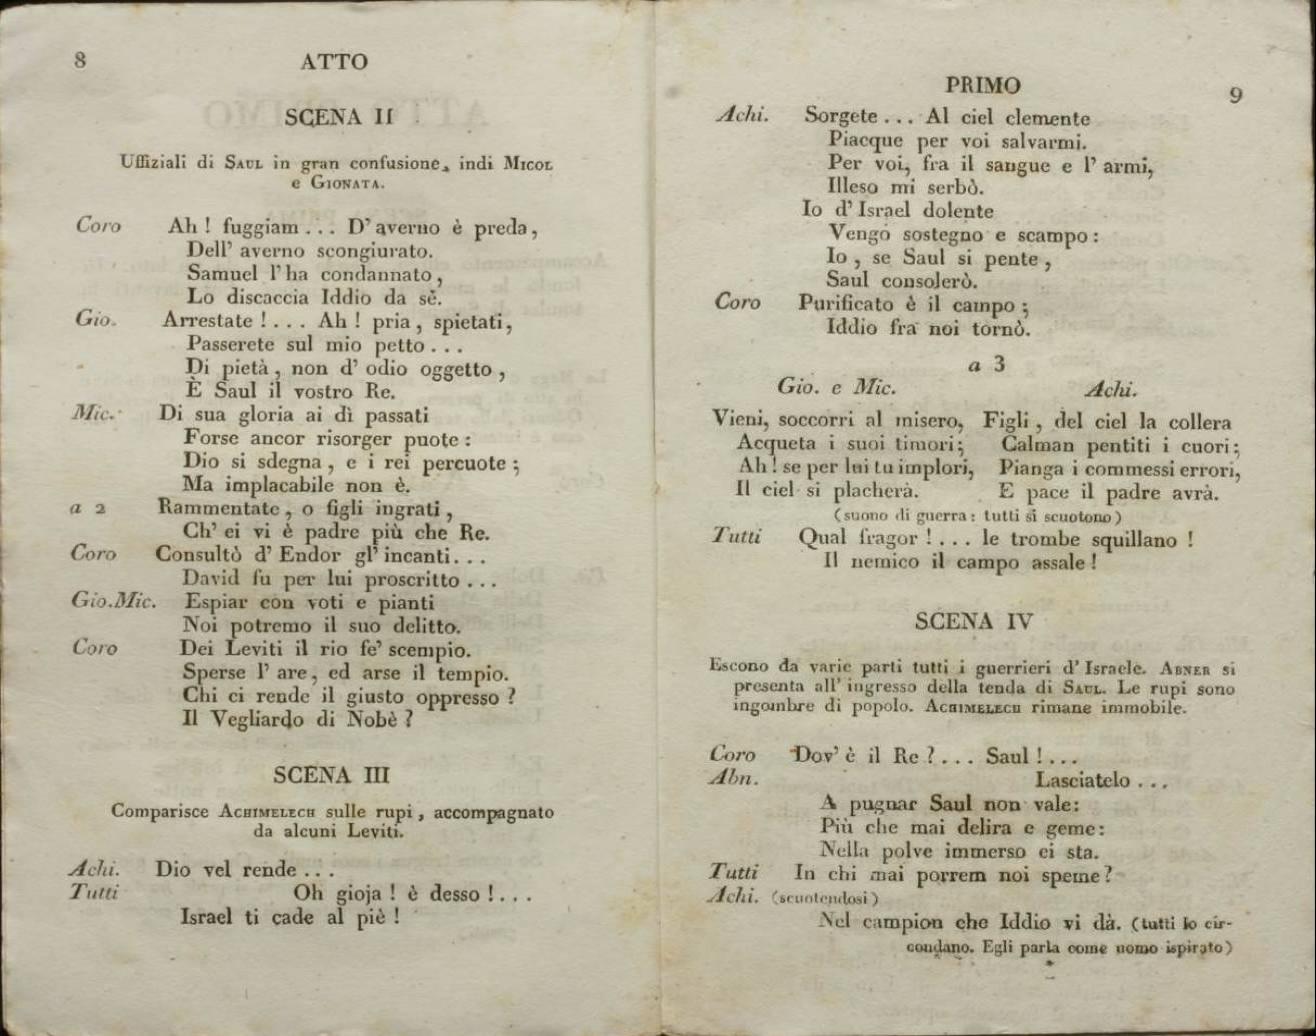 8
ATTO
SCENA II
Uffiziali di SAUL in gran confusione, indi MICOL
e GIONATA.
Coro Ah ! fuggiam . . . D' averno è preda,
Dell' averno scongiurato.
Samuel l' ha condannato,
Lo discaccia Iddio da sè.
Gio. Arrestate ! . . . Ah ! pria, spietati,
Passerete sul mio petto . . .
Di pietà, non d' odio oggetto,
È Saul il vostro Re.
Mic. Di sua gloria ai dì passati
Forse ancor risorger puote :
Dio si sdegna, e i rei percuote ;
Ma implacabile non è.
a 2 Rammentate, o figli ingrati,
Ch' ei vi è padre più che Re.
Coro Consultò d' Endor gl' incanti . . .
David fu per lui proscritto . . .
Gio. Mic. Espiar con voti e pianti
Noi potremo il suo delitto.
Coro Dei Leviti il rio fe' scempio.
Sperse l' are, ed arse il tempio.
Chi ci rende il giusto oppresso ?
Il Vegliardo di Nobè ?
SCENA III
Comparisce ACHIMELECH sulle rupi, accompagnato
da alcuni Leviti.
Achi. Dio vel rende . . .
Tutti Oh gioja ! è desso ! . . .
Israel ti cade al piè !
PRIMO
9
Achi. Sorgete . . . Al ciel clemente
Piacque per voi salvarmi.
Per voi, fra il sangue e l' armi,
Illeso mi serbò.
Io d' Israel dolente
Vengo sostegno e scampo :
Io, se Saul si pente,
Saul consolerò.
Coro Purificato è il campo ;
Iddio fra noi tornò.
a 3
Gio. e Mic. Achi.
Vieni, soccorri al misero, Figli, del ciel la collera
Acqueta i suoi timori ; Calman pentiti i cuori ;
Ah ! se per lui tu implori, Pianga i commessi errori,
Il ciel si placherà. E pace il padre avrà.
(suono di guerra : tutti si scuotono)
Tutti Qual fragor ! . . . le trombe squillano !
Il nemico il campo assale !
SCENA IV
Escono da varie parti tutti i guerrieri d' Israele. ABNER si
presenta all' ingresso della tenda di SAUL. Le rupi sono
ingombre di popolo. ACHIMELECH rimane immobile.
Coro Dov' è il Re ? . . . Saul ! . . .
Abn. Lasciatelo . . .
A pugnar Saul non vale :
Più che mai delira e geme :
Nella polve immerso ei sta.
Tutti In chi mai porrem noi speme ?
Achi. (scuotendosi)
Nel campion che Iddio vi dà. (tutti lo cir-
condano. Egli parla come uomo ispirato)